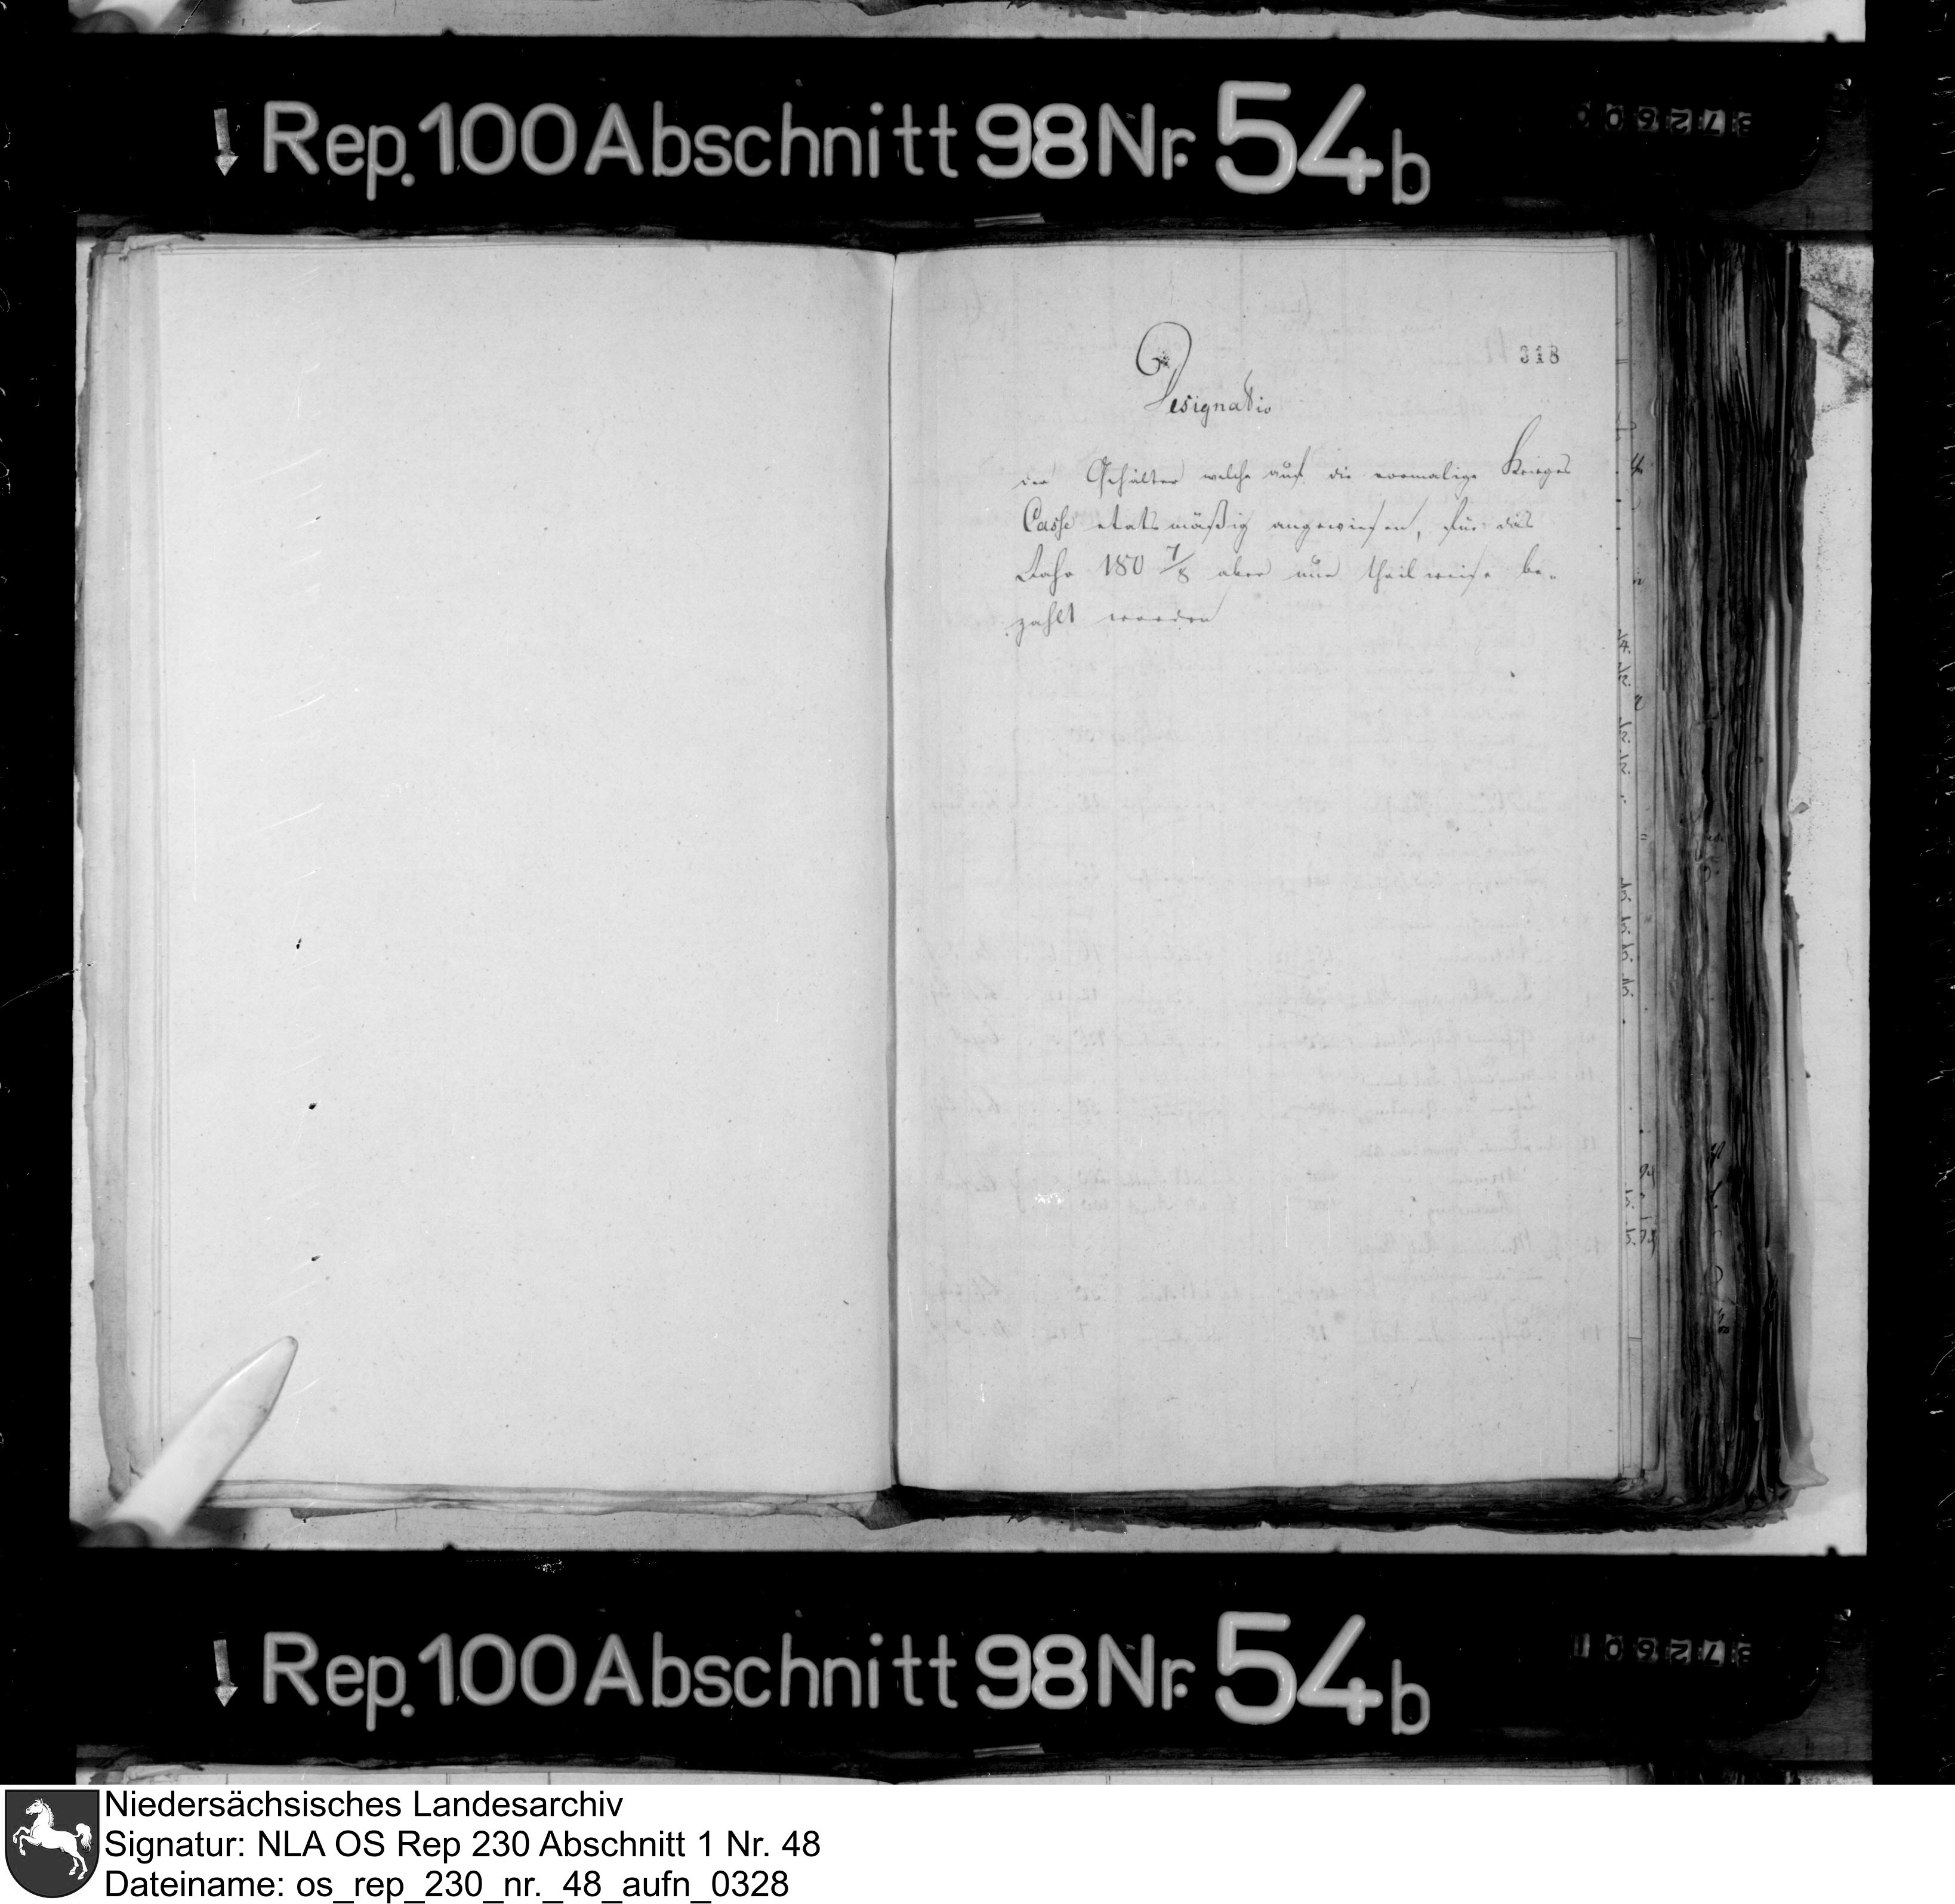 Rep. 100 Abschnitt 98 Nr. 54 b
372600
318
Designatio
der Gehälter welche auf die vormalige Krieges
Casse etatsmäßig angewiesen, für das
Jahr 180 7/8 aber nur theilweise be-
zahlt worden
Rep. 100 Abschnitt 98 Nr. 54 b
372601
Niedersächsisches Landesarchiv
Signatur: NLA OS Rep 230 Abschnitt 1 Nr. 48
Dateiname: os_rep_230_nr._48_aufn_0328